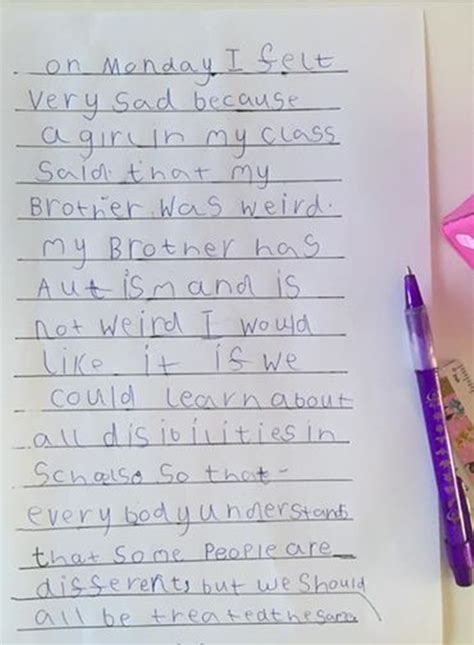 on Monday I felt
very sad because
a girl in my class
said that my
Brother was weird.
my Brother has
Autism and is
not weird I would
like it if we
could learn about
all disibilities in
Schools so that
everybody understands
that some people are
differents but we should
all be treated the same